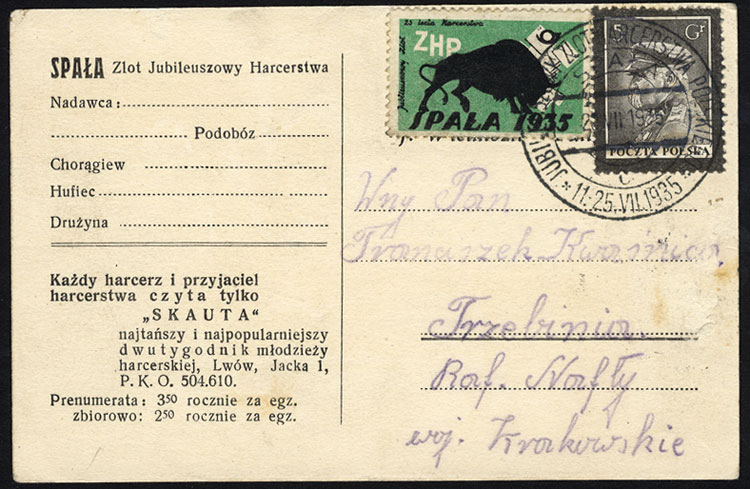 SPAŁA Zlot Jubileuszowy Harcerstwa
Nadawca:
Podobóz
Chorągiew
Hufiec
Drużyna
Każdy harcerz i przyjaciel
harcerstwa czyta tylko
„SKAUTA“
najtańszy i najpopularniejszy
dwutygodnik młodzieży
harcerskiej, Lwów, Jacka 1,
P. K. O. 504.610.
Prenumerata: 3⁵⁰ rocznie za egz.
zbiorowo: 2⁵⁰ rocznie za egz.
25 lecia Harcerstwa
Jubileuszowy Zlot
ZHP
SPAŁA 1935
5 Gr
POCZTA POLSKA
11.-25.VII.1935
Wny Pan
Franciszek
Trzebinia.
Raf. Nafty
woj. Krakowskie